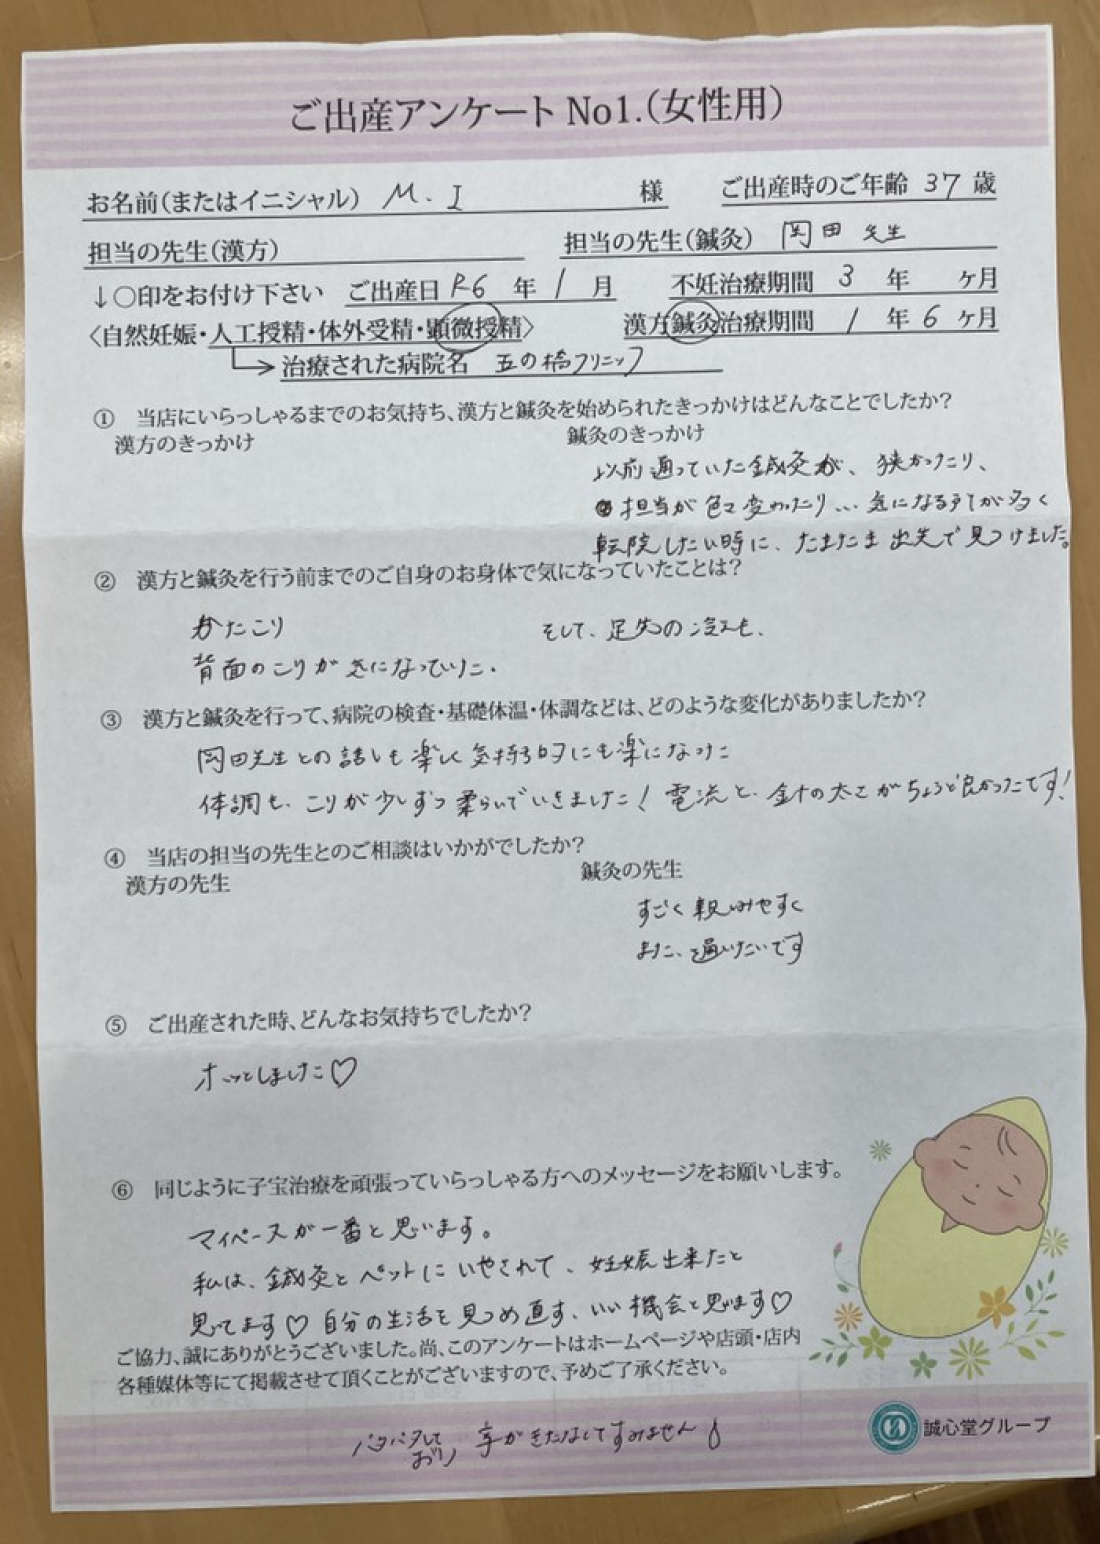 ご出産アンケート No1.(女性用)
お名前(またはイニシャル) M.I 様 ご出産時のご年齢 37 歳
担当の先生(漢方) 担当の先生(鍼灸) 岡田 先生
↓○印をお付け下さい ご出産日 R6 年 1 月 不妊治療期間 3 年 ヶ月
〈自然妊娠・人工授精・体外受精・顕微授精〉 漢方鍼灸治療期間 1 年 6 ヶ月
治療された病院名 五の橋クリニック
① 当店にいらっしゃるまでのお気持ち、漢方と鍼灸を始められたきっかけはどんなことでしたか?
漢方のきっかけ 鍼灸のきっかけ
以前通っていた鍼灸が、狭かったり、
担当が色々変わったり... 気になる所が多く
転院したい時に、たまたま出先で見つけました。
② 漢方と鍼灸を行う前までのご自身のお身体で気になっていたことは?
かたこり そして、足先の冷えも。
背面のこりが気になっていた。
③ 漢方と鍼灸を行って、病院の検査・基礎体温・体調などは、どのような変化がありましたか?
岡田先生との話しも楽しく気持ち的にも楽になった
体調も、こりが少しずつ柔らいでいきました! 電流と、針の太さがちょうど良かったです!
④ 当店の担当の先生とのご相談はいかがでしたか?
漢方の先生 鍼灸の先生
すごく親しみやすく
また、通いたいです
⑤ ご出産された時、どんなお気持ちでしたか?
ホッとしました♡
⑥ 同じように子宝治療を頑張っていらっしゃる方へのメッセージをお願いします。
マイペースが一番と思います。
私は、鍼灸とペットにいやされて、妊娠出来たと
思ってます♡ 自分の生活を見つめ直す、いい機会と思います♡
ご協力、誠にありがとうございました。尚、このアンケートはホームページや店頭・店内
各種媒体等にて掲載させて頂くことがございますので、予めご了承ください。
誠心堂グループ
バタバタして
おり 字がきたなくてすみません